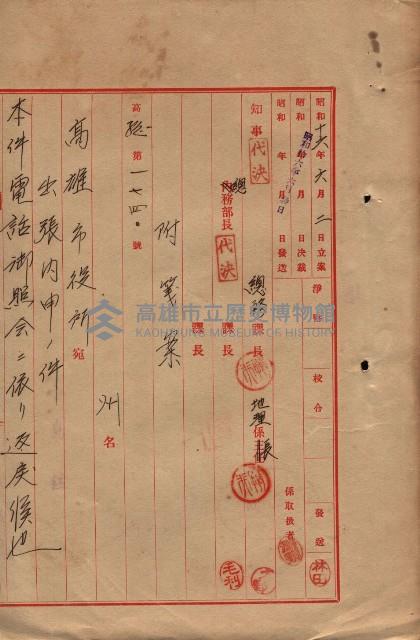 昭和十六年六月二日立案 淨書 校合 發送
昭和 年 月 日決裁
昭和 年 月 日發送
係取扱者
知事 代決 總務部長 代決 總務課長 地理係長
課長
課長
附箋案
高總第一七四〇號
州名
高雄市役所宛
出張內申ノ件
本件電話御照会ニ依リ返戾候也
林
毛利
高雄市立歷史博物館
KAOHSIUNG MUSEUM OF HISTORY